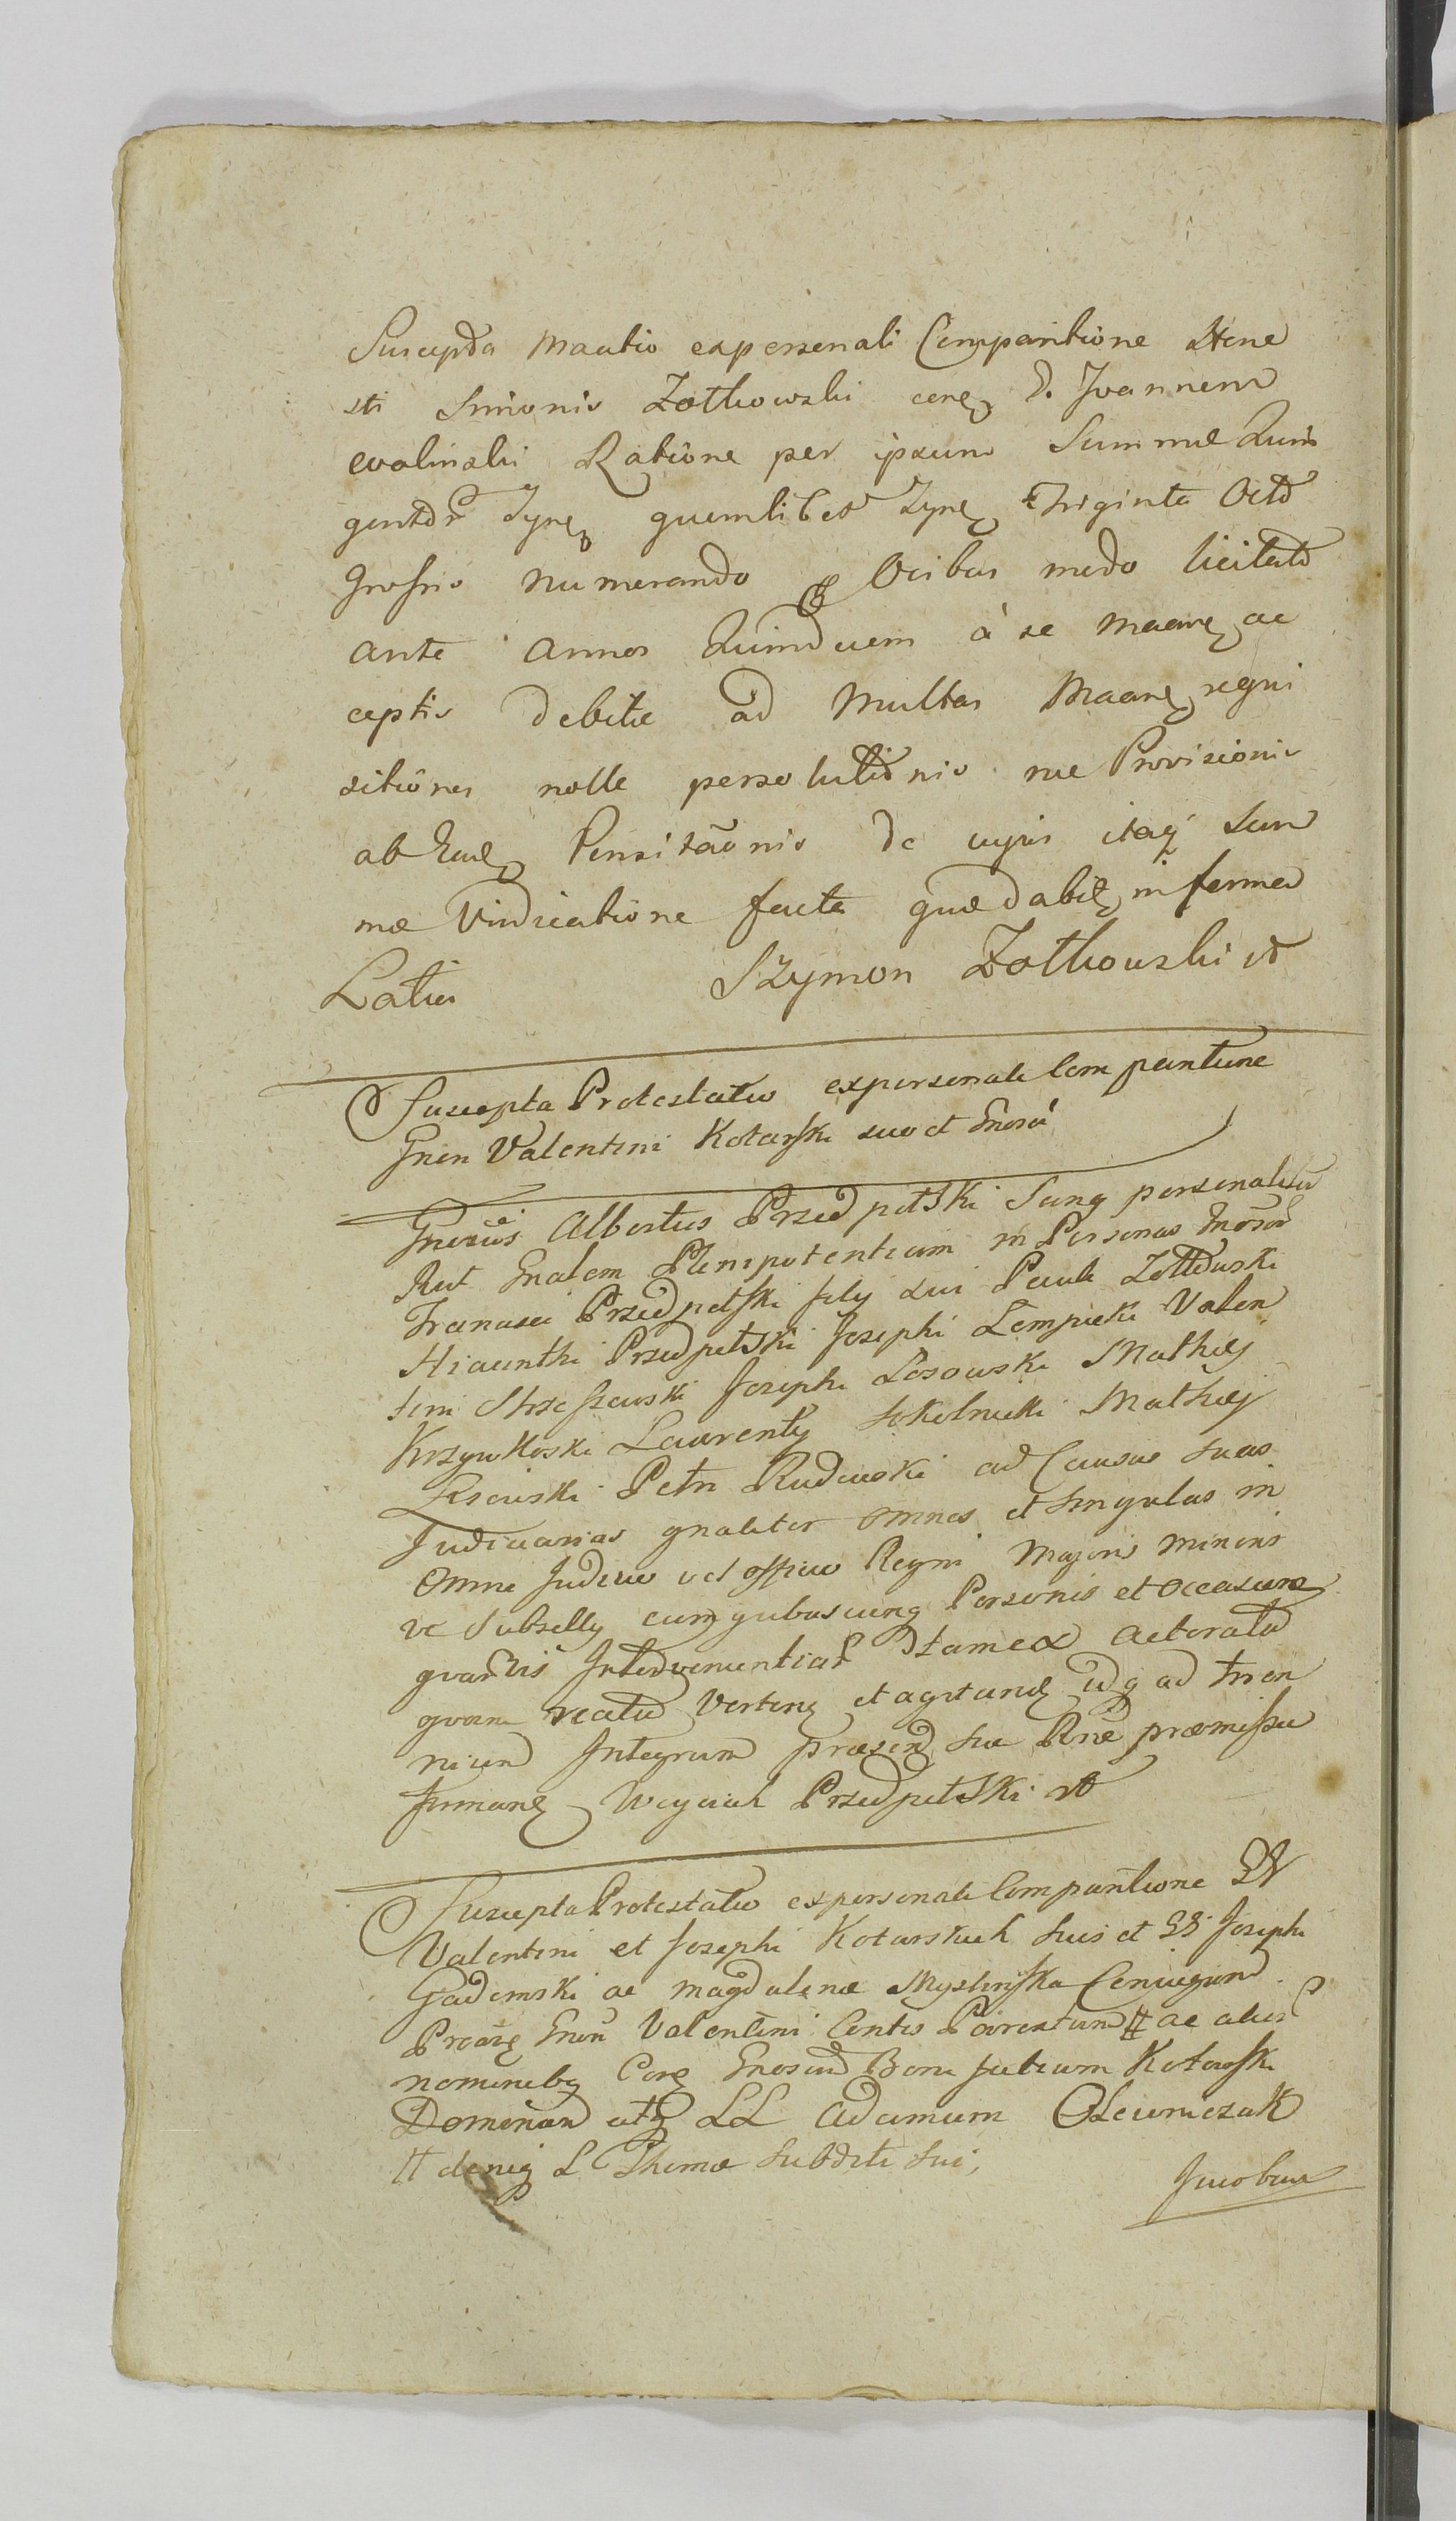 Suscepta Maatio ex personali Comparitione Hone
sti Simonis Zołkowski cong D. Joannem
ewalinski Ratione per ipsum Summæ Quin
gentor Tynf quemlibet Tynf Triginta Octo
Grossis numerando Ovibus modo licitato
ante annos Quindecem à se Maane ac
ceptis debitæ ad Multas Maane reqvi
sitiones nolle persolutionis nec Provisionis
ab Pensitaonis de cujus itaq Sum
mæ Vindicatione facta in forma
Latior Szymon Zołkowski
Suscepta Protestatio ex personali Comparitione
Gnen Valentini Kotarski suo et Gnosor
Gnerosus Albertus Przedpełski Sang personaliter
Rut Gnalem Plenipotentiam in Personas Gnosor
Francisci Przedpełski filij sui Pauli Zołtowski
Hiacinthi Przedpełski Josephi Łempicki Valen
tini Strzeszewski Josephi Łosowski Mathiej
Krzywkoski Laurentij Sokolnicki Mathiej
Petri Rudowski ad Causas suas
Judiciarias gnaliter omnes et singulas in
omni Judicio vel officio Regni Majoris minoris
ve Subsellij cum quibuscunq Personis et occasione
quamvis Intervenientiar tam ex actoratu
quam reatu Verten et agitand idq ad trien
nium Integrum præsend sua Rne præmissa
firmand Woyciech Przedpełski
Suscepta Protestatio ex personali Comparitione GG
Valentini et Josephi Kotarskich suis et GG Josephi
Gadomski ac Magdalenæ Myslinska Coniugum
Procore Gnen Valentini Contis Parentum # ac alijs
nominibq Cong Gnosam Bonifatium Kotarski
Dominum atq LL Adamum Olewniczak
# deniq L Thomæ Subditi sui,
Jacobum